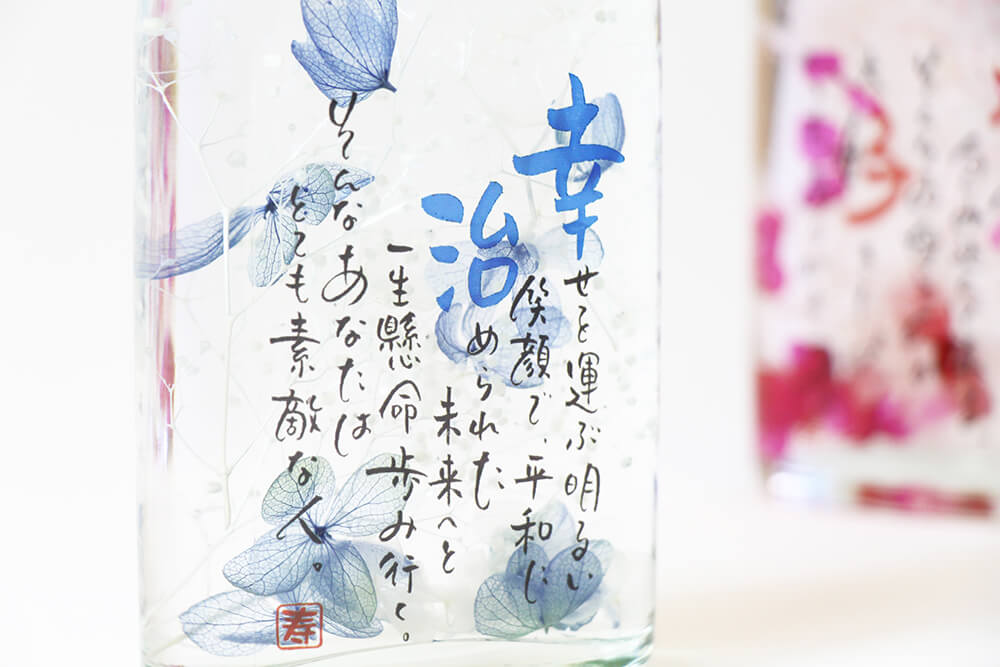 幸せを運ぶ明るい
笑顔で、平和に
治められた
未来へと
一生懸命歩み行く。
そんなあなたは
とても素敵な人。
寿